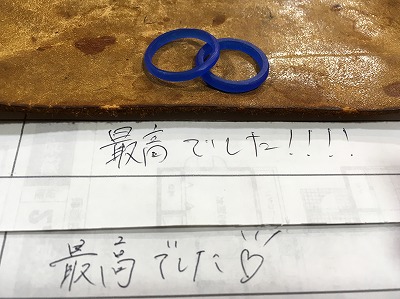 最高でした!!!!
最高でした♡